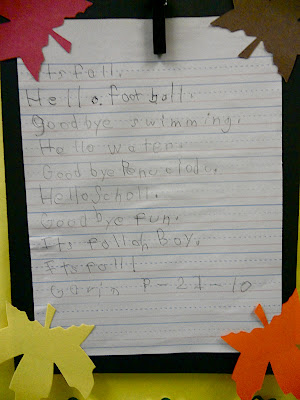 Its fall.
Hello foot ball.
goodbye swimming.
Hello water.
Good bye
Hello Scholl.
Good bye fun.
Its fall oh Boy.
Its fall!